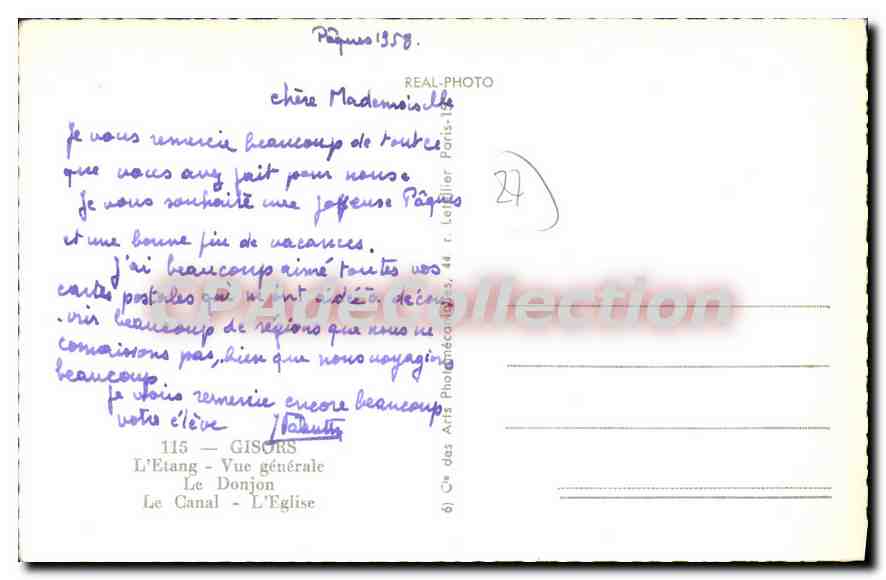 Pâques 1958.
REAL-PHOTO
chère Mademoiselle
Je vous remercie beaucoup de tout ce
que vous avez fait pour nous.
Je vous souhaite une joyeuse Pâques
et une bonne fin de vacances.
J'ai beaucoup aimé toutes vos
cartes postales qui m'ont aidée à décou
-vrir beaucoup de régions que nous ne
connaissons pas, bien que nous voyagions
beaucoup.
Je vous remercie encore beaucoup
votre élève
115 — GISORS
L'Etang - Vue générale
Le Donjon
Le Canal - L'Eglise
6) Cie des Arts Photomécaniques, 44, r. Letellier Paris-15
27
CPAdeCollection